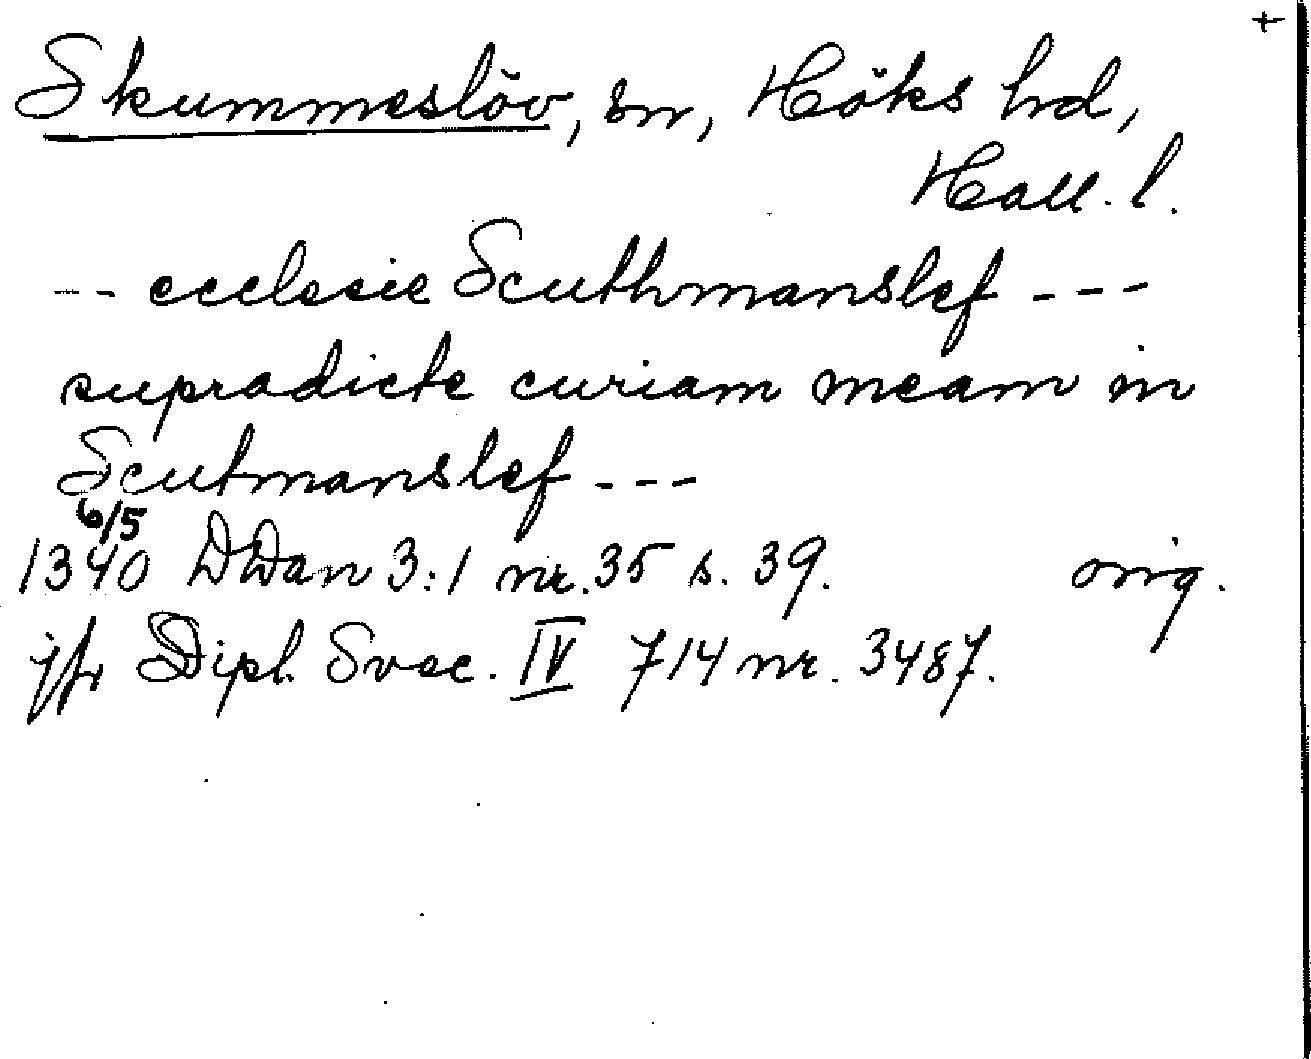 +
Skummeslöv, sn, Höks hd,
Hall. l.
-- ecclesie Scuthmanslef ---
supradicte curiam meam in
Scutmanslef ---
6/5
1340 DDan 3:1 nr. 35 s. 39. orig.
jfr Dipl. Svec. IV 714 nr. 3487.